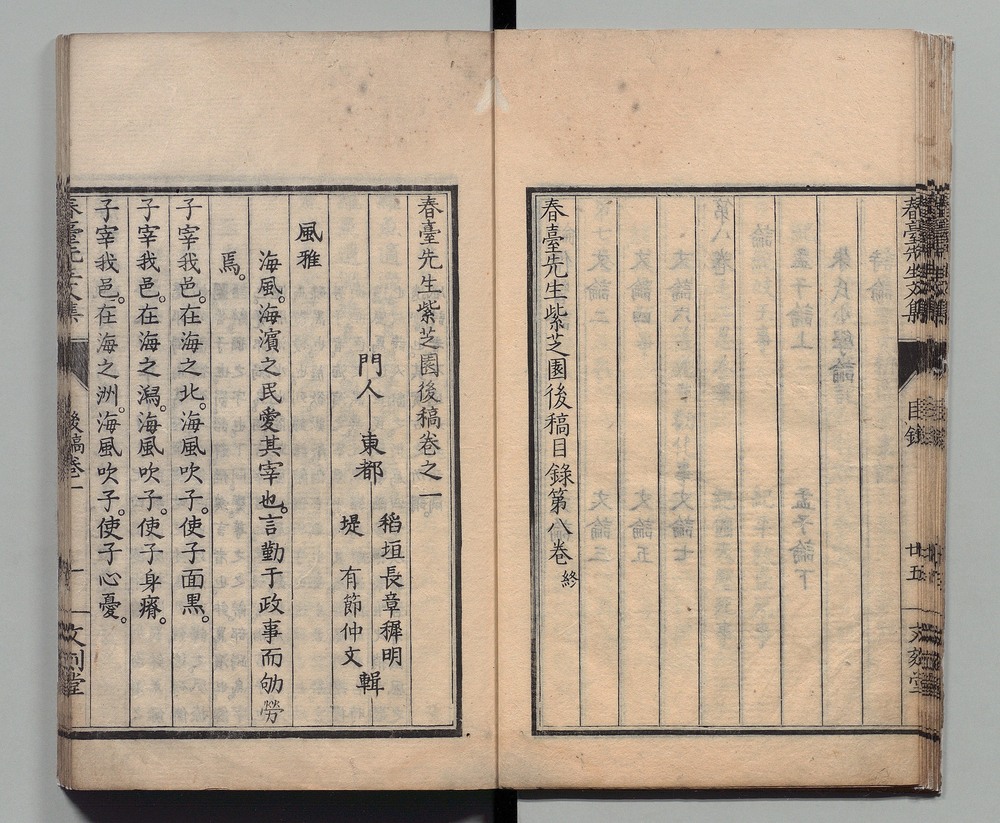 春臺先生文集
目錄
廿五
春臺先生紫芝園後稿目錄第八卷終
春臺先生紫芝園後稿卷之一
門人 東都 稻垣長章穉明
堤 有節仲文 輯
風雅
海風。海濱之民愛其宰也。言勤于政事而劬勞
焉。
子宰我邑。在海之北。海風吹子。使子面黑。
子宰我邑。在海之潟。海風吹子。使子身瘠。
子宰我邑。在海之洲。海風吹子。使子心憂。
春臺先生文集
後稿卷一